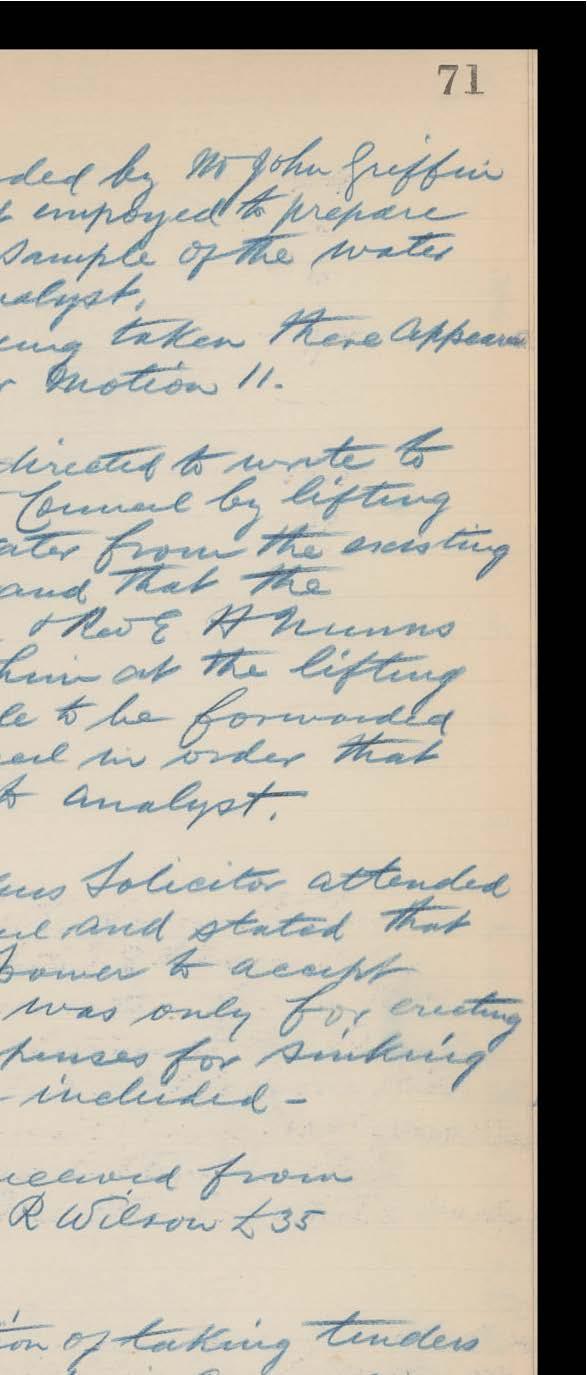 71
ded by Mr John Griffin
employed to prepare
sample of the water
nalyst,
taken there appear
Motion 11.
directed to write to
Council by lifting
ater from the existing
and that the
& Rev E H Nunns
him at the lifting
le to be forwarded
cil in order that
to analyst.
Solicitor attended
and stated that
power to accept
was only for erecting
penses for sinking
- included -
received from
R Wilson £35
ion of taking tenders